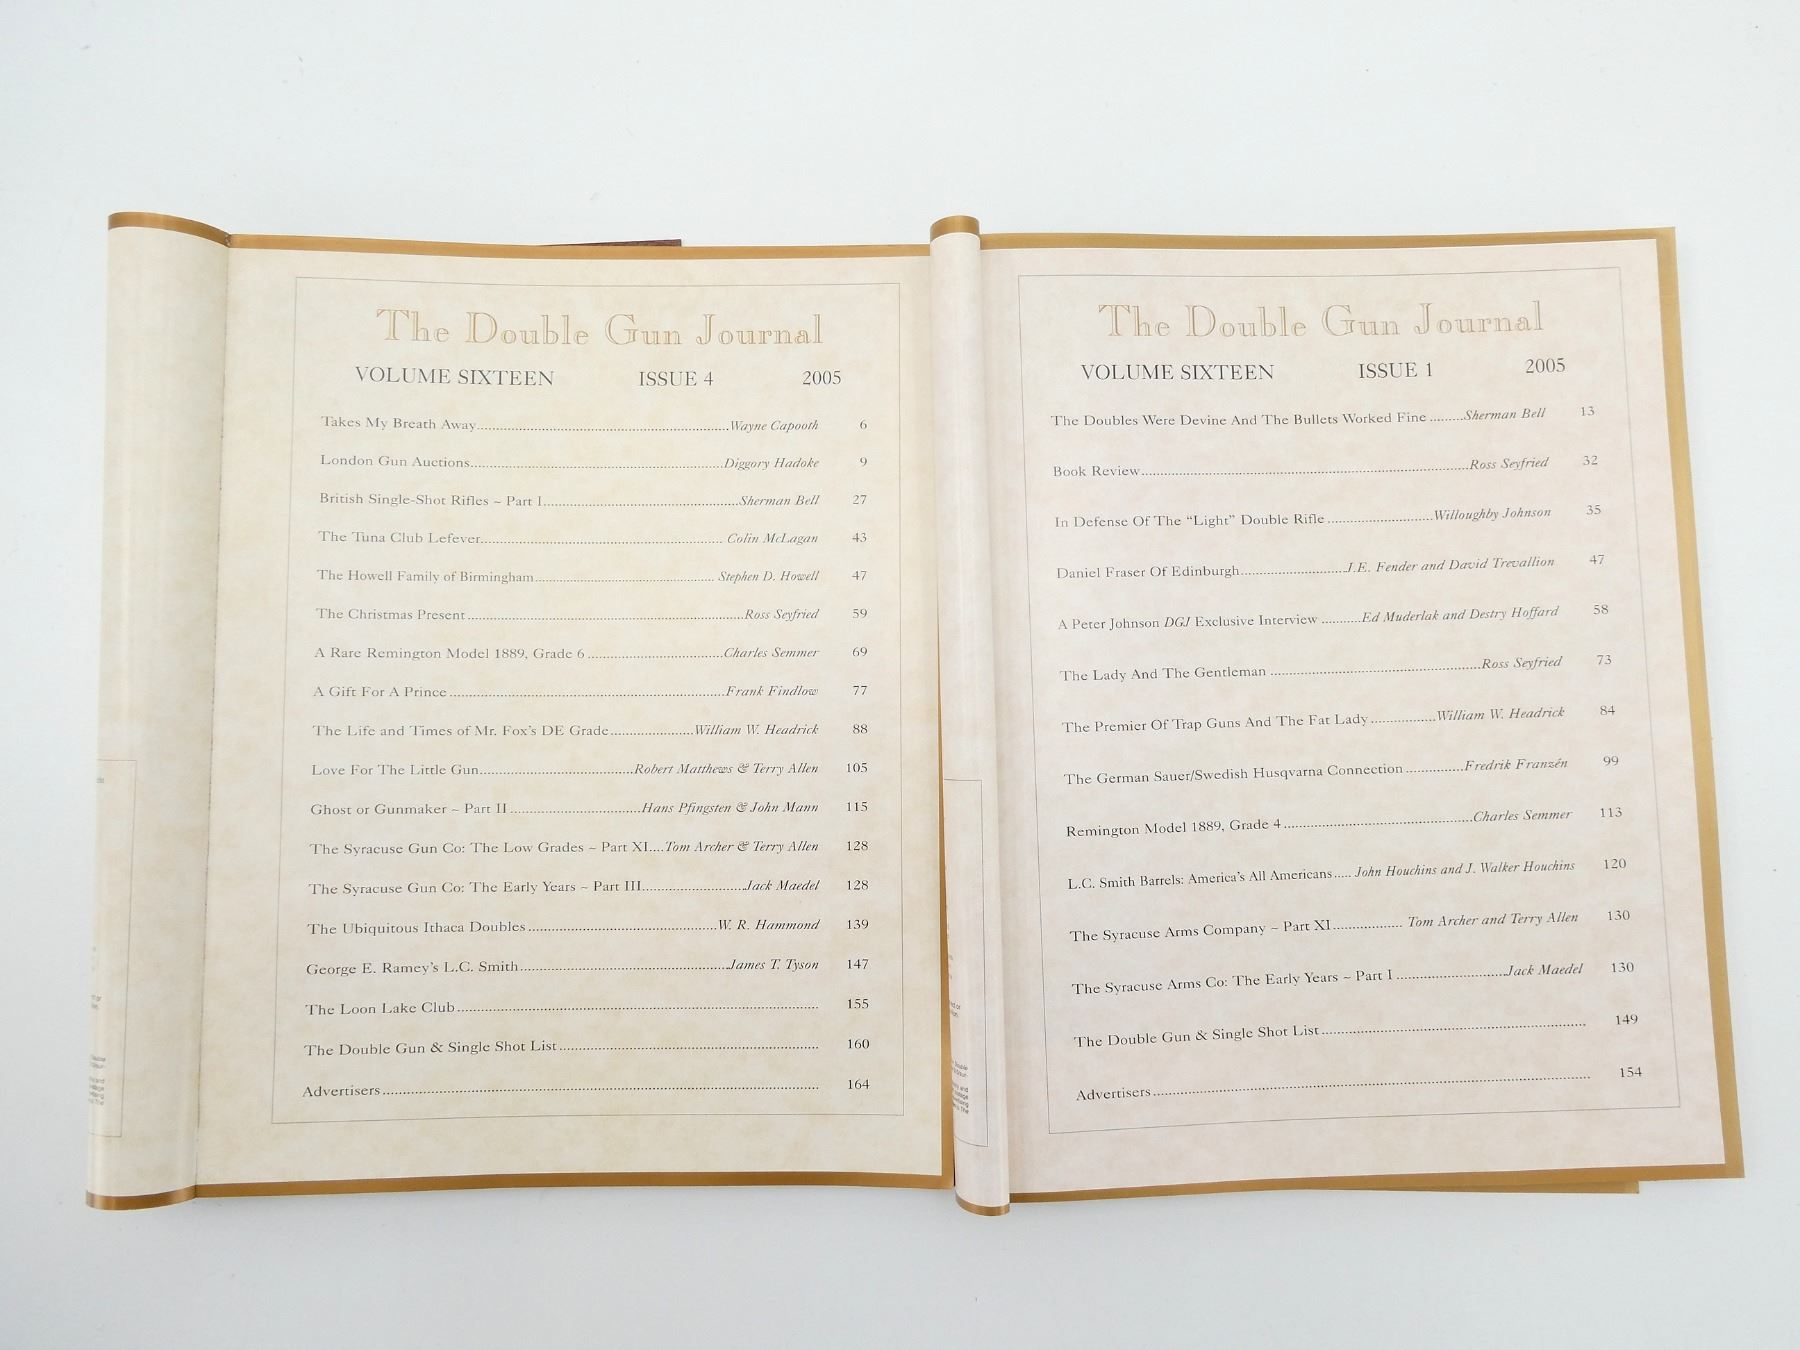 The Double Gun Journal
VOLUME SIXTEEN ISSUE 4 2005
Takes My Breath Away Wayne Capooth 6
London Gun Auctions Diggory Hadoke 9
British Single-Shot Rifles ~ Part I Sherman Bell 27
The Tuna Club Lefever Colin McLagan 43
The Howell Family of Birmingham Stephen D. Howell 47
The Christmas Present Ross Seyfried 59
A Rare Remington Model 1889, Grade 6 Charles Semmer 69
A Gift For A Prince Frank Findlow 77
The Life and Times of Mr. Fox's DE Grade William W. Headrick 88
Love For The Little Gun Robert Matthews & Terry Allen 105
Ghost or Gunmaker ~ Part II Hans Pfingsten & John Mann 115
The Syracuse Gun Co: The Low Grades ~ Part XI Tom Archer & Terry Allen 128
The Syracuse Gun Co: The Early Years ~ Part III Jack Maedel 128
The Ubiquitous Ithaca Doubles W. R. Hammond 139
George E. Ramey's L.C. Smith James T. Tyson 147
The Loon Lake Club 155
The Double Gun & Single Shot List 160
Advertisers 164
The Double Gun Journal
VOLUME SIXTEEN ISSUE 1 2005
The Doubles Were Devine And The Bullets Worked Fine Sherman Bell 13
Book Review Ross Seyfried 32
In Defense Of The "Light" Double Rifle Willoughby Johnson 35
Daniel Fraser Of Edinburgh J.E. Fender and David Trevallion 47
A Peter Johnson DGJ Exclusive Interview Ed Muderlak and Destry Hoffard 58
The Lady And The Gentleman Ross Seyfried 73
The Premier Of Trap Guns And The Fat Lady William W. Headrick 84
The German Sauer/Swedish Husqvarna Connection Fredrik Franzén 99
Remington Model 1889, Grade 4 Charles Semmer 113
L.C. Smith Barrels: America's All Americans John Houchins and J. Walker Houchins 120
The Syracuse Arms Company ~ Part XI Tom Archer and Terry Allen 130
The Syracuse Arms Co: The Early Years ~ Part I Jack Maedel 130
The Double Gun & Single Shot List 149
Advertisers 154